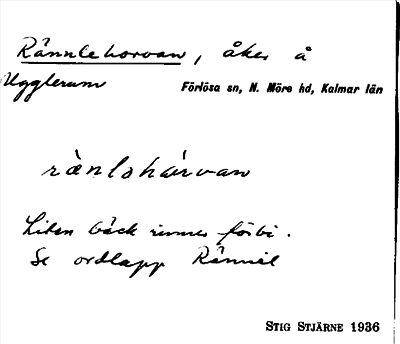 Rännlehorvan, åker å
Ugglerum
Förlösa sn, N. Möre hd, Kalmar län
rä̀nlohårvan
Liten bäck rinner förbi.
Se ordlapp Rännil
STIG STJÄRNE 1936